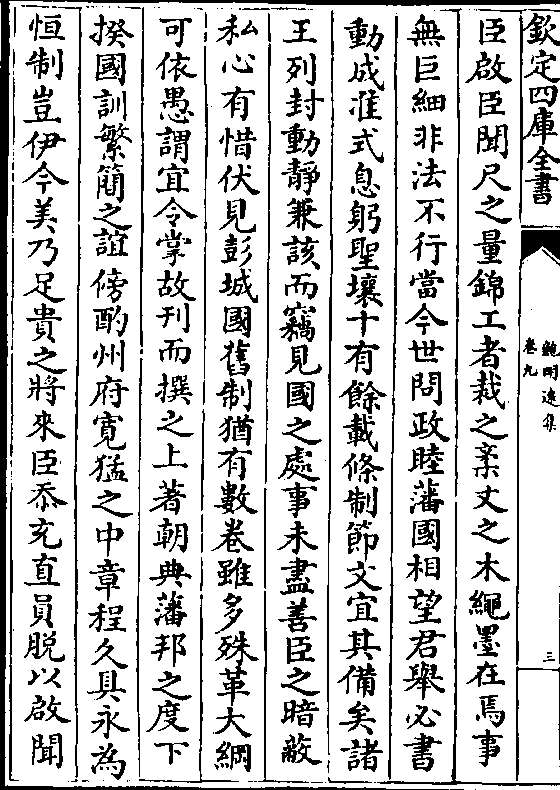 欽定四庫全書
鮑明遠集
卷九
三
臣啟臣聞尺之量錦工者裁之棄丈之木繩墨在焉事
無巨細非法不行當今世問政睦藩國相望君舉必書
動成准式息躬聖壤十有餘載條制節文宜其備矣諸
王列封動靜兼該而竊見國之處事未盡善臣之暗蔽
私心有惜伏見彭城國舊制猶有數卷雖多殊革大綱
可依愚謂宜令掌故刋而撰之上著朝典藩邦之度下
揆國訓繁簡之誼傍酌州府寛猛之中章程久具永為
恒制豈伊今美乃足貴之將來臣忝充直員脱以啟聞